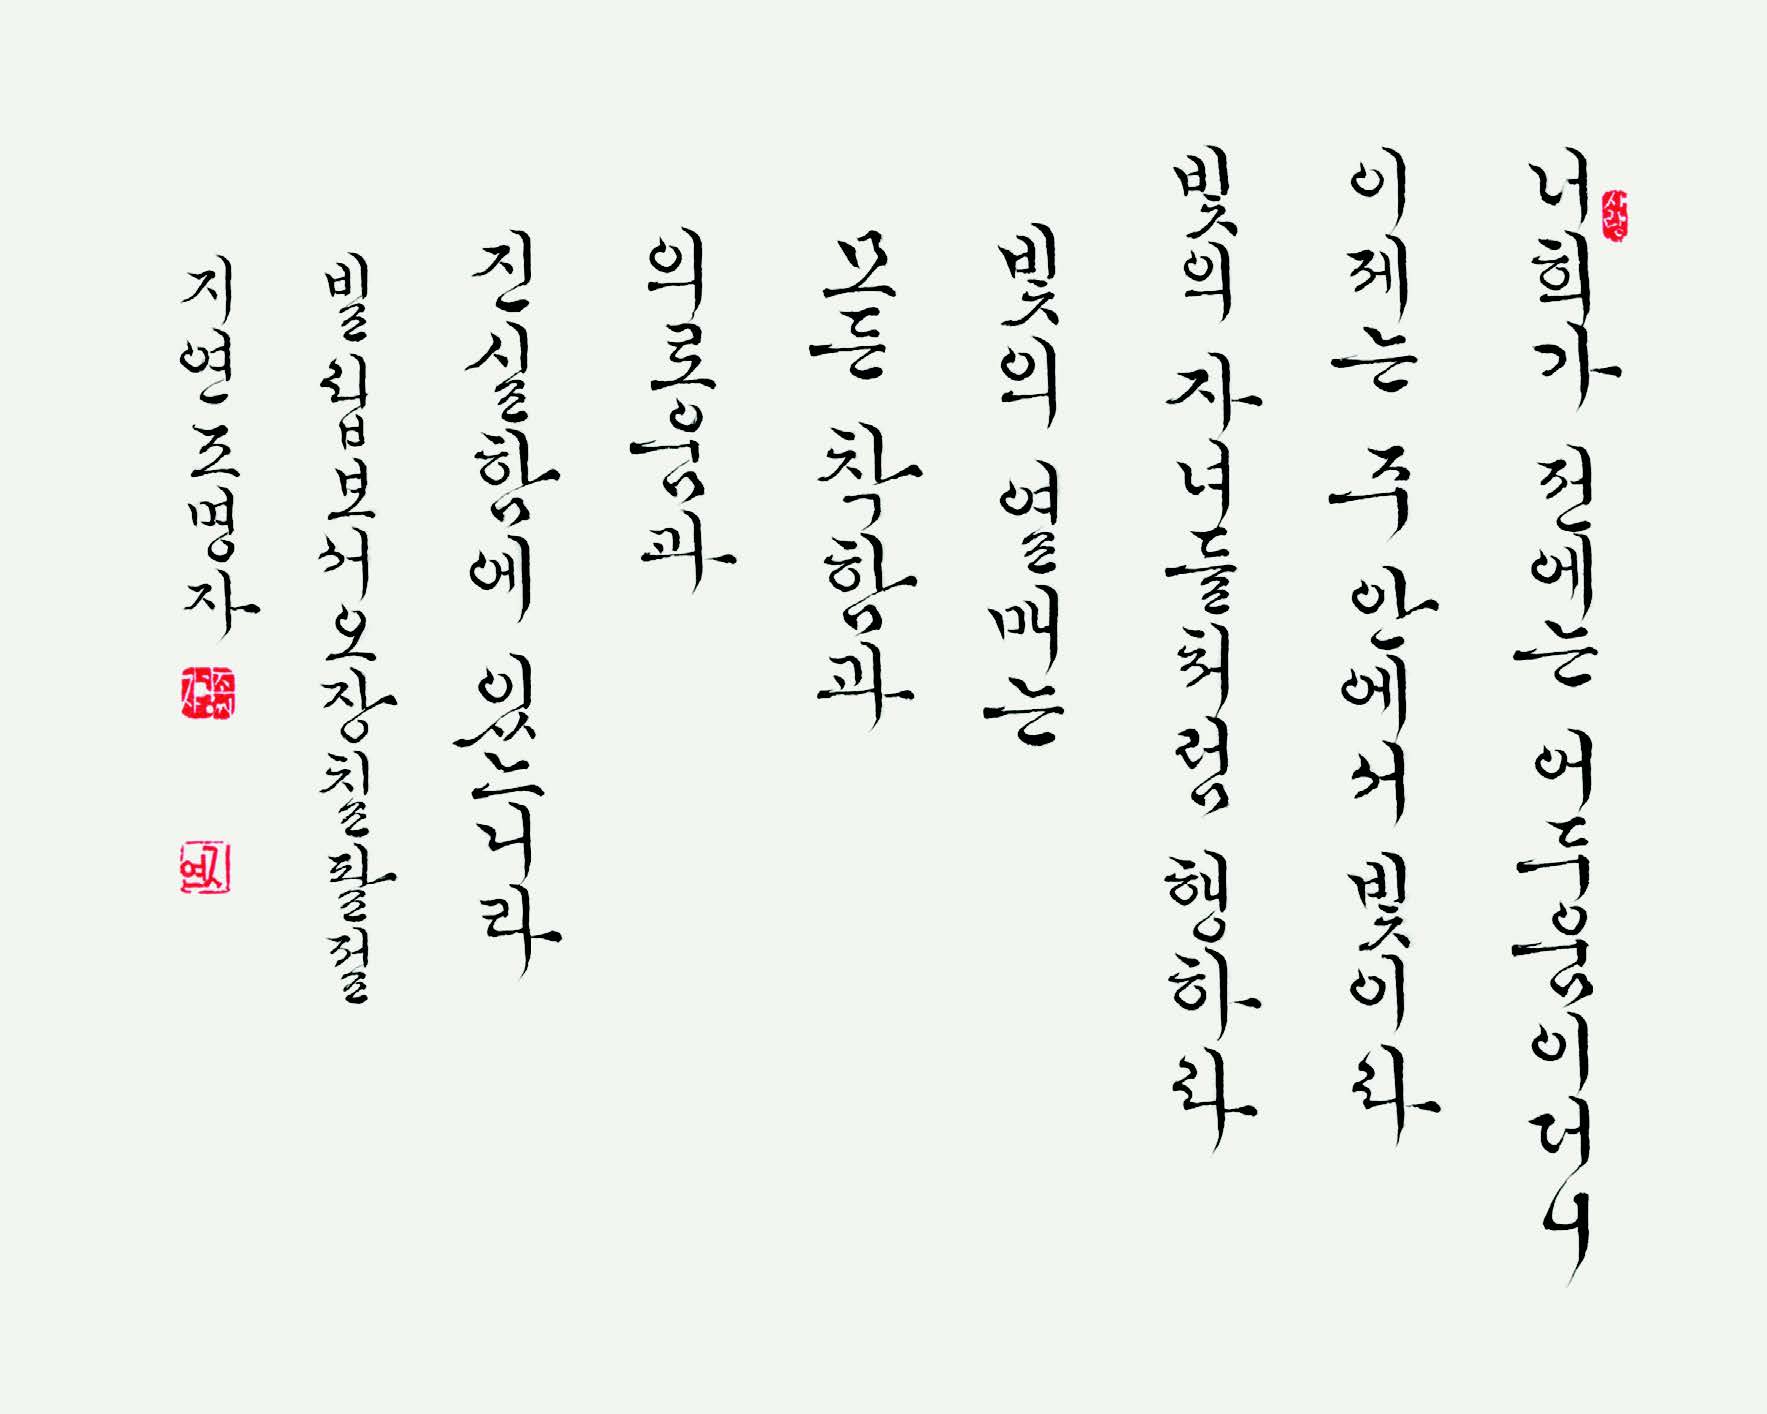 사랑
너희가 전에는 어두움이더니
이제는 주 안에서 빛이라
빛의 자녀들처럼 행하라
빛의 열매는
모든 착함과
의로움과
진실함에 있느니라
빌립보서오장칠팔절
지연조명자
지연